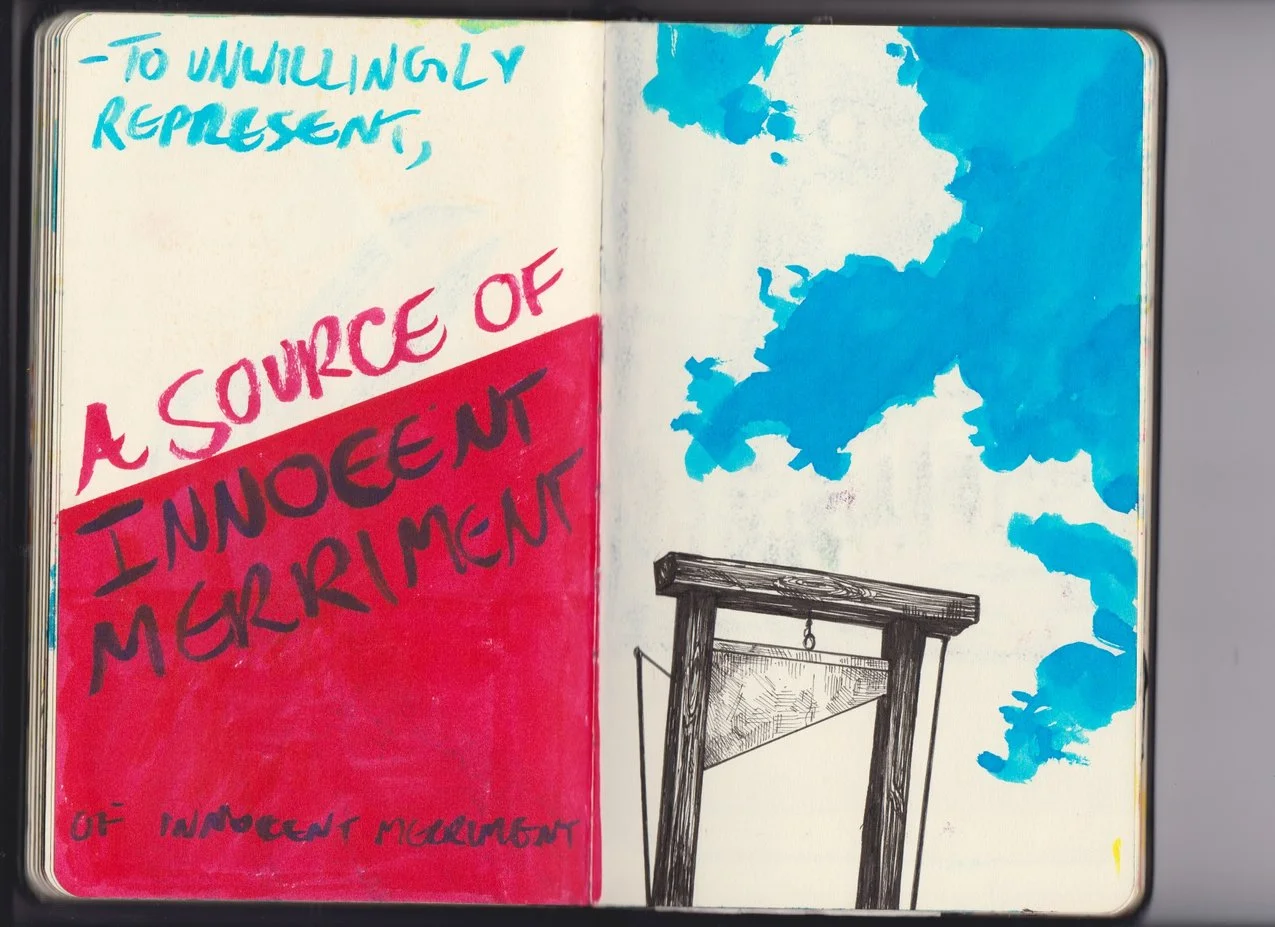 -TO UNWILLINGLY
REPRESENT,
A SOURCE OF
INNOCENT
MERRIMENT
OF INNOCENT MERRIMENT